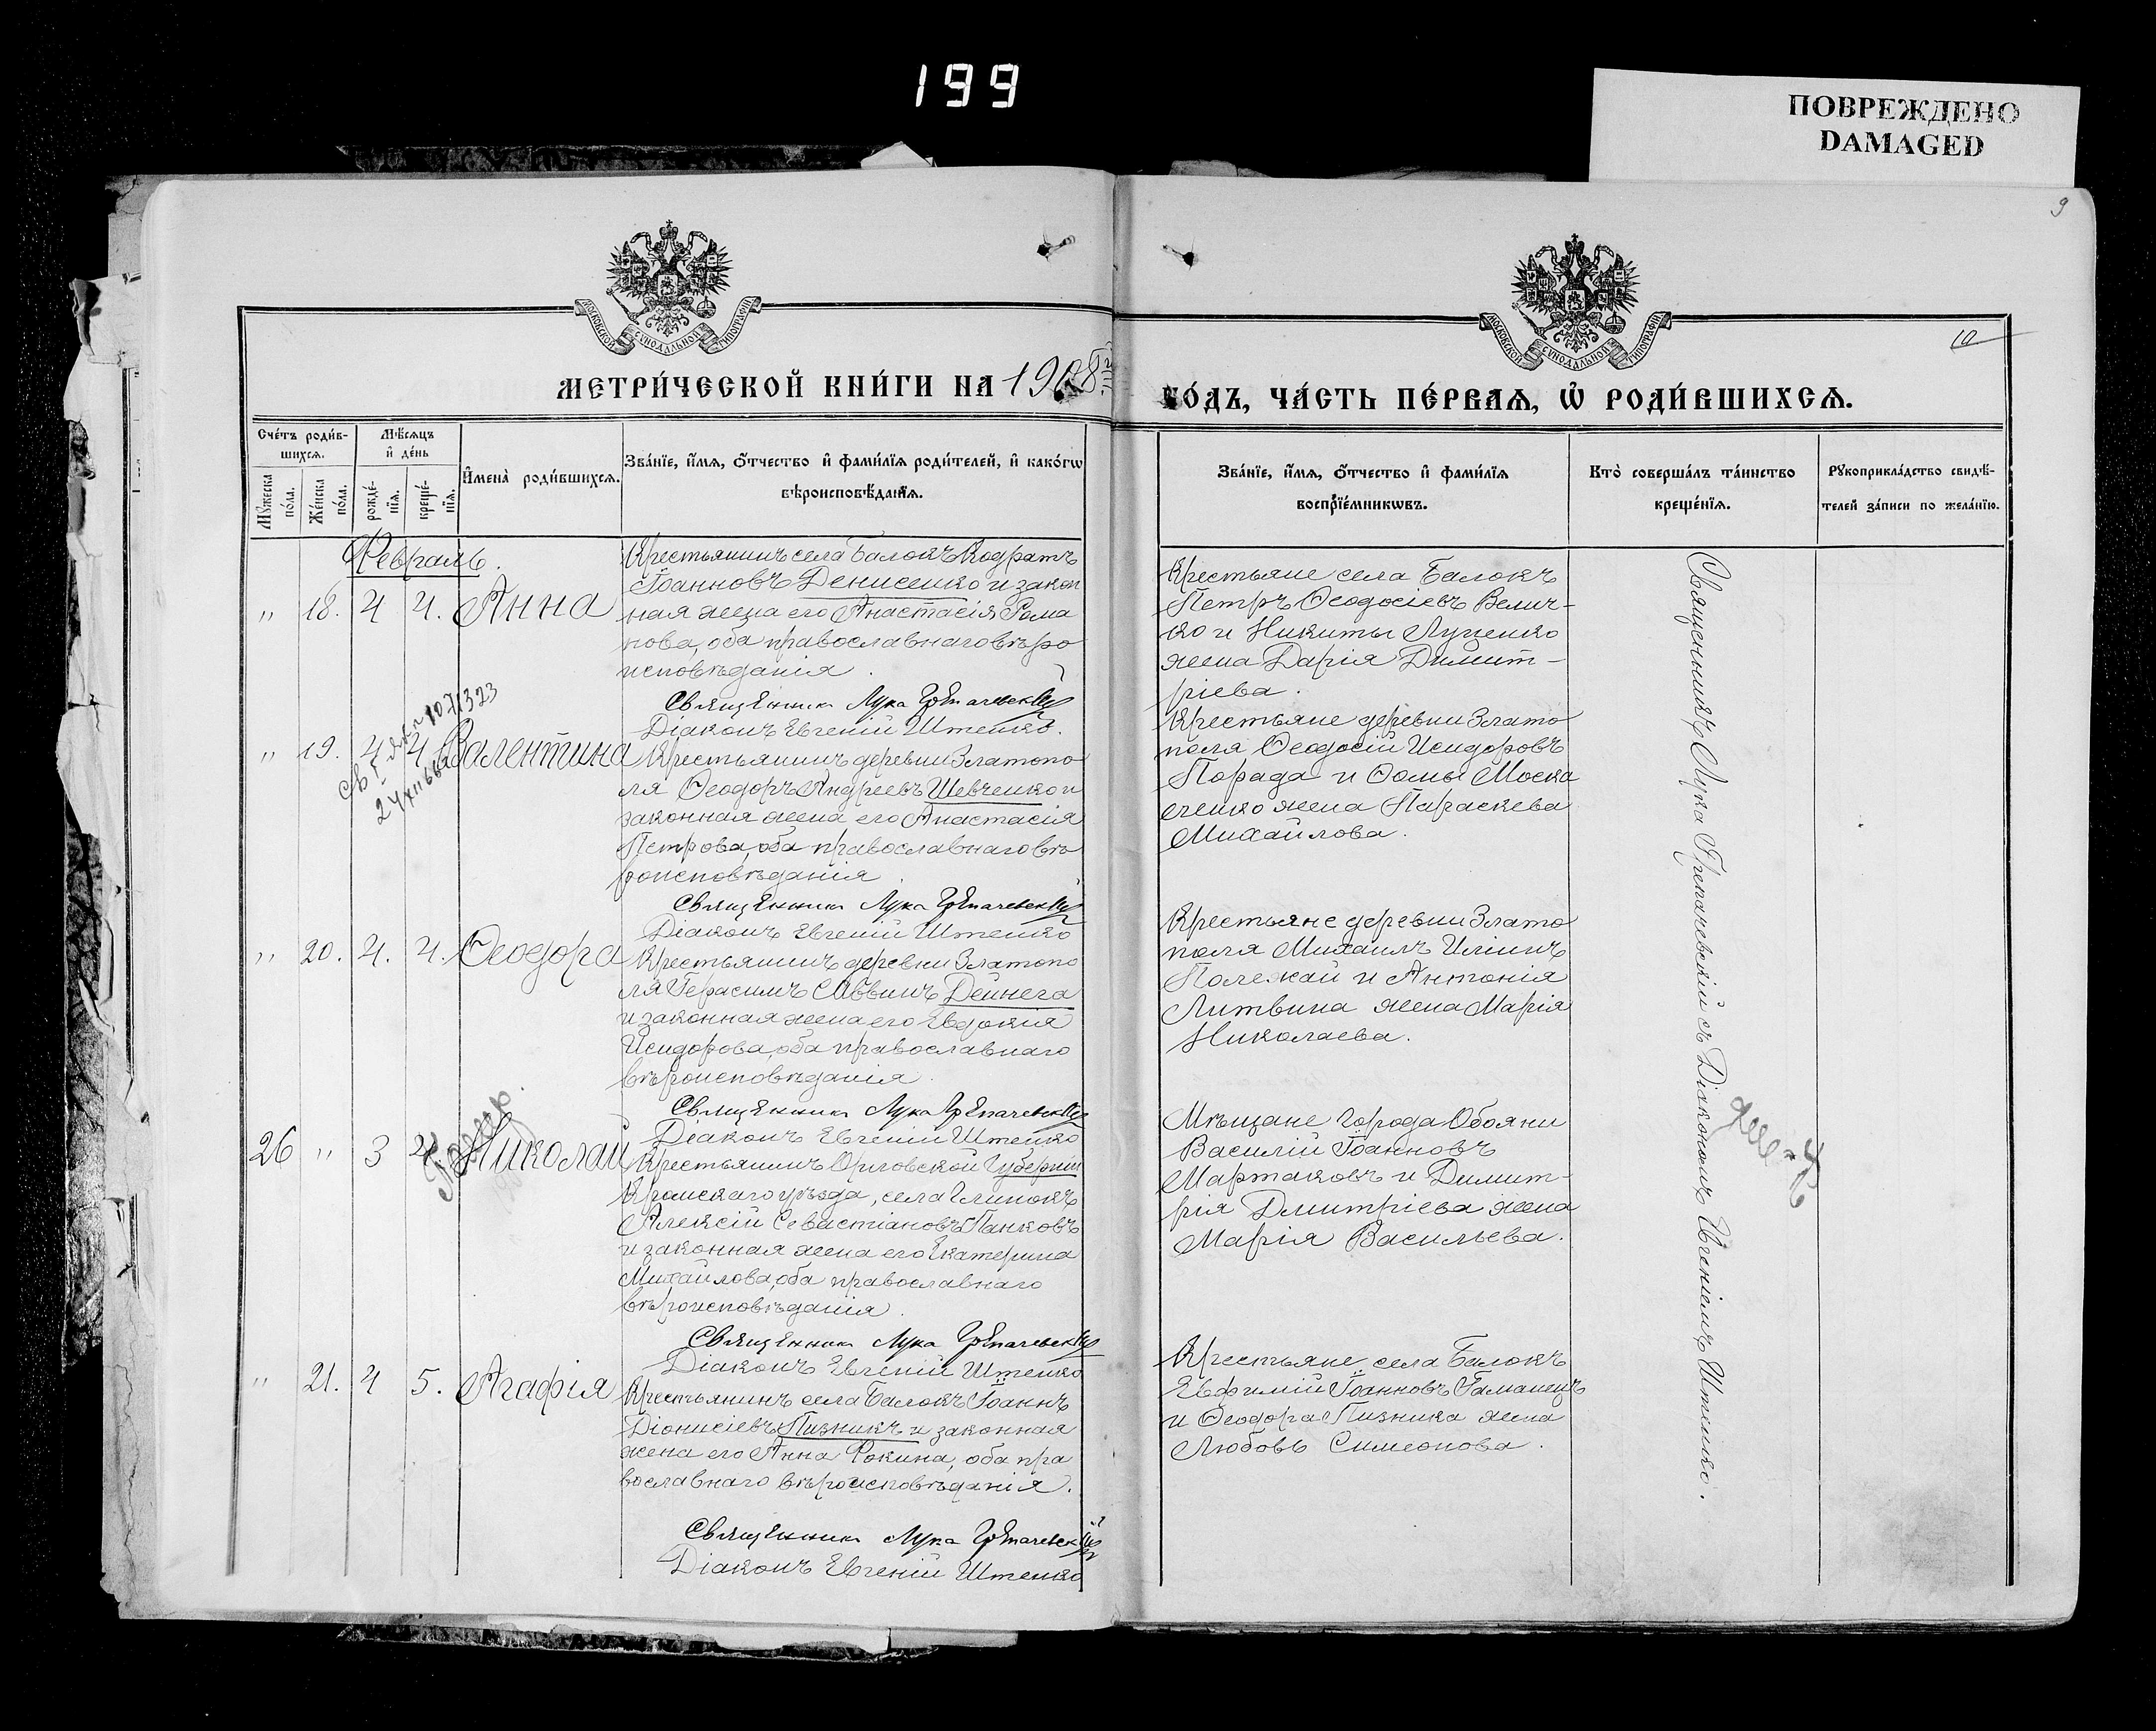 199
ПОВРЕЖДЕНО
DAMAGED
9
10
МОСКОВСКОЙ СѴНОДАЛЬНОЙ ТИПОГРАФІИ
МОСКОВСКОЙ СѴНОДАЛЬНОЙ ТИПОГРАФІИ
МЕТРИ́ЧЕСКОЙ КНИ́ГИ НА 1908й
ГО́ДЪ, ЧА́СТЬ ПЕ́РВАѦ, Ѡ РОДИ́ВШИХСѦ.
Сче́тъ роди́вшихсѧ.
Мꙋжеска по́ла.
Же́нска по́ла.
Мѣ́сѧцъ и де́нь
рожде́нїѧ.
креще́нїѧ.
Имена̀ роди́вшихсѧ.
Зва́нїе, и́мѧ, о́тчество и фами́лїѧ роди́телей, и како́гѡ
вѣроисповѣ́данїѧ.
Зва́нїе, и́мѧ, о́тчество и фами́лїѧ
воспрїе́мникѡвъ.
Кто̀ соверша́лъ та́инство
креще́нїѧ.
Рꙋкоприкла́дство свидѣ́-
телей за́писи по жела́нїю.
Февраль.
" 18. 4 4. Анна
Крестьянинъ села Балокъ Кодратъ
Іоанновъ Денисенко и закон
ная жена его Анастасія Рома
нова, оба православнаго вѣро
исповѣданія.
Священникъ Лука Грепачевскій
Діаконъ Евгеній Штенко.
Крестьяне села Балокъ
Петръ Ѳеодосіевъ Велич-
ко и Никиты Луценко
жена Дарія Димит-
ріева.
" 19. 4 4 Валентина
Крестьянинъ деревни Златопо
ля Ѳеодоръ Андреевъ Шевченко и
законная жена его Анастасія
Петрова, оба православнаго вѣ
роисповѣданія.
Священникъ Лука Грепачевскій
Діаконъ Евгеній Штенко
Крестьяне деревни Злато
поля Ѳеодосій Исидоровъ
Порада и Ѳомы Моска
ленко жена Параскева
Михайлова.
" 20. 4. 4. Ѳеодора
Крестьянинъ деревни Златопо
ля Герасимъ Саввинъ Дейнега
и законная жена его Евдокія
Исидорова, оба православнаго
вѣроисповѣданія.
Священникъ Лука Грепачевскій
Діаконъ Евгеній Штенко
Крестьяне деревни Злато
поля Михаилъ Иліинъ
Полежай и Антонія
Литвина жена Марія
Николаева.
26 " 3 4 Николай
Крестьянинъ Орловской Губерніи
Кромскаго уѣзда, села Глинокъ
Алексій Севастіановъ Панковъ
и законная жена его Екатерина
Михайлова, оба православнаго
вѣроисповѣданія.
Священникъ Лука Грепачевскій
Діаконъ Евгеній Штенко
Мѣщане города Обояни
Василій Іоанновъ
Мартаковъ и Димит-
рія Дмитріева жена
Марія Васильева.
" 21. 4 5. Агафія
Крестьянинъ села Балокъ Іоаннъ
Діонисіевъ Пизникъ и законная
жена его Анна Фокина, оба пра
вославнаго вѣроисповѣданія.
Священникъ Лука Грепачевскій
Діаконъ Евгеній Штенко
Крестьяне села Балокъ
Евфимій Іоанновъ Гаманецъ
и Ѳеодора Пизника жена
Любовь Симеонова.
Священникъ Лука Грепачевскій съ Діакономъ Евгеніемъ Штенко.